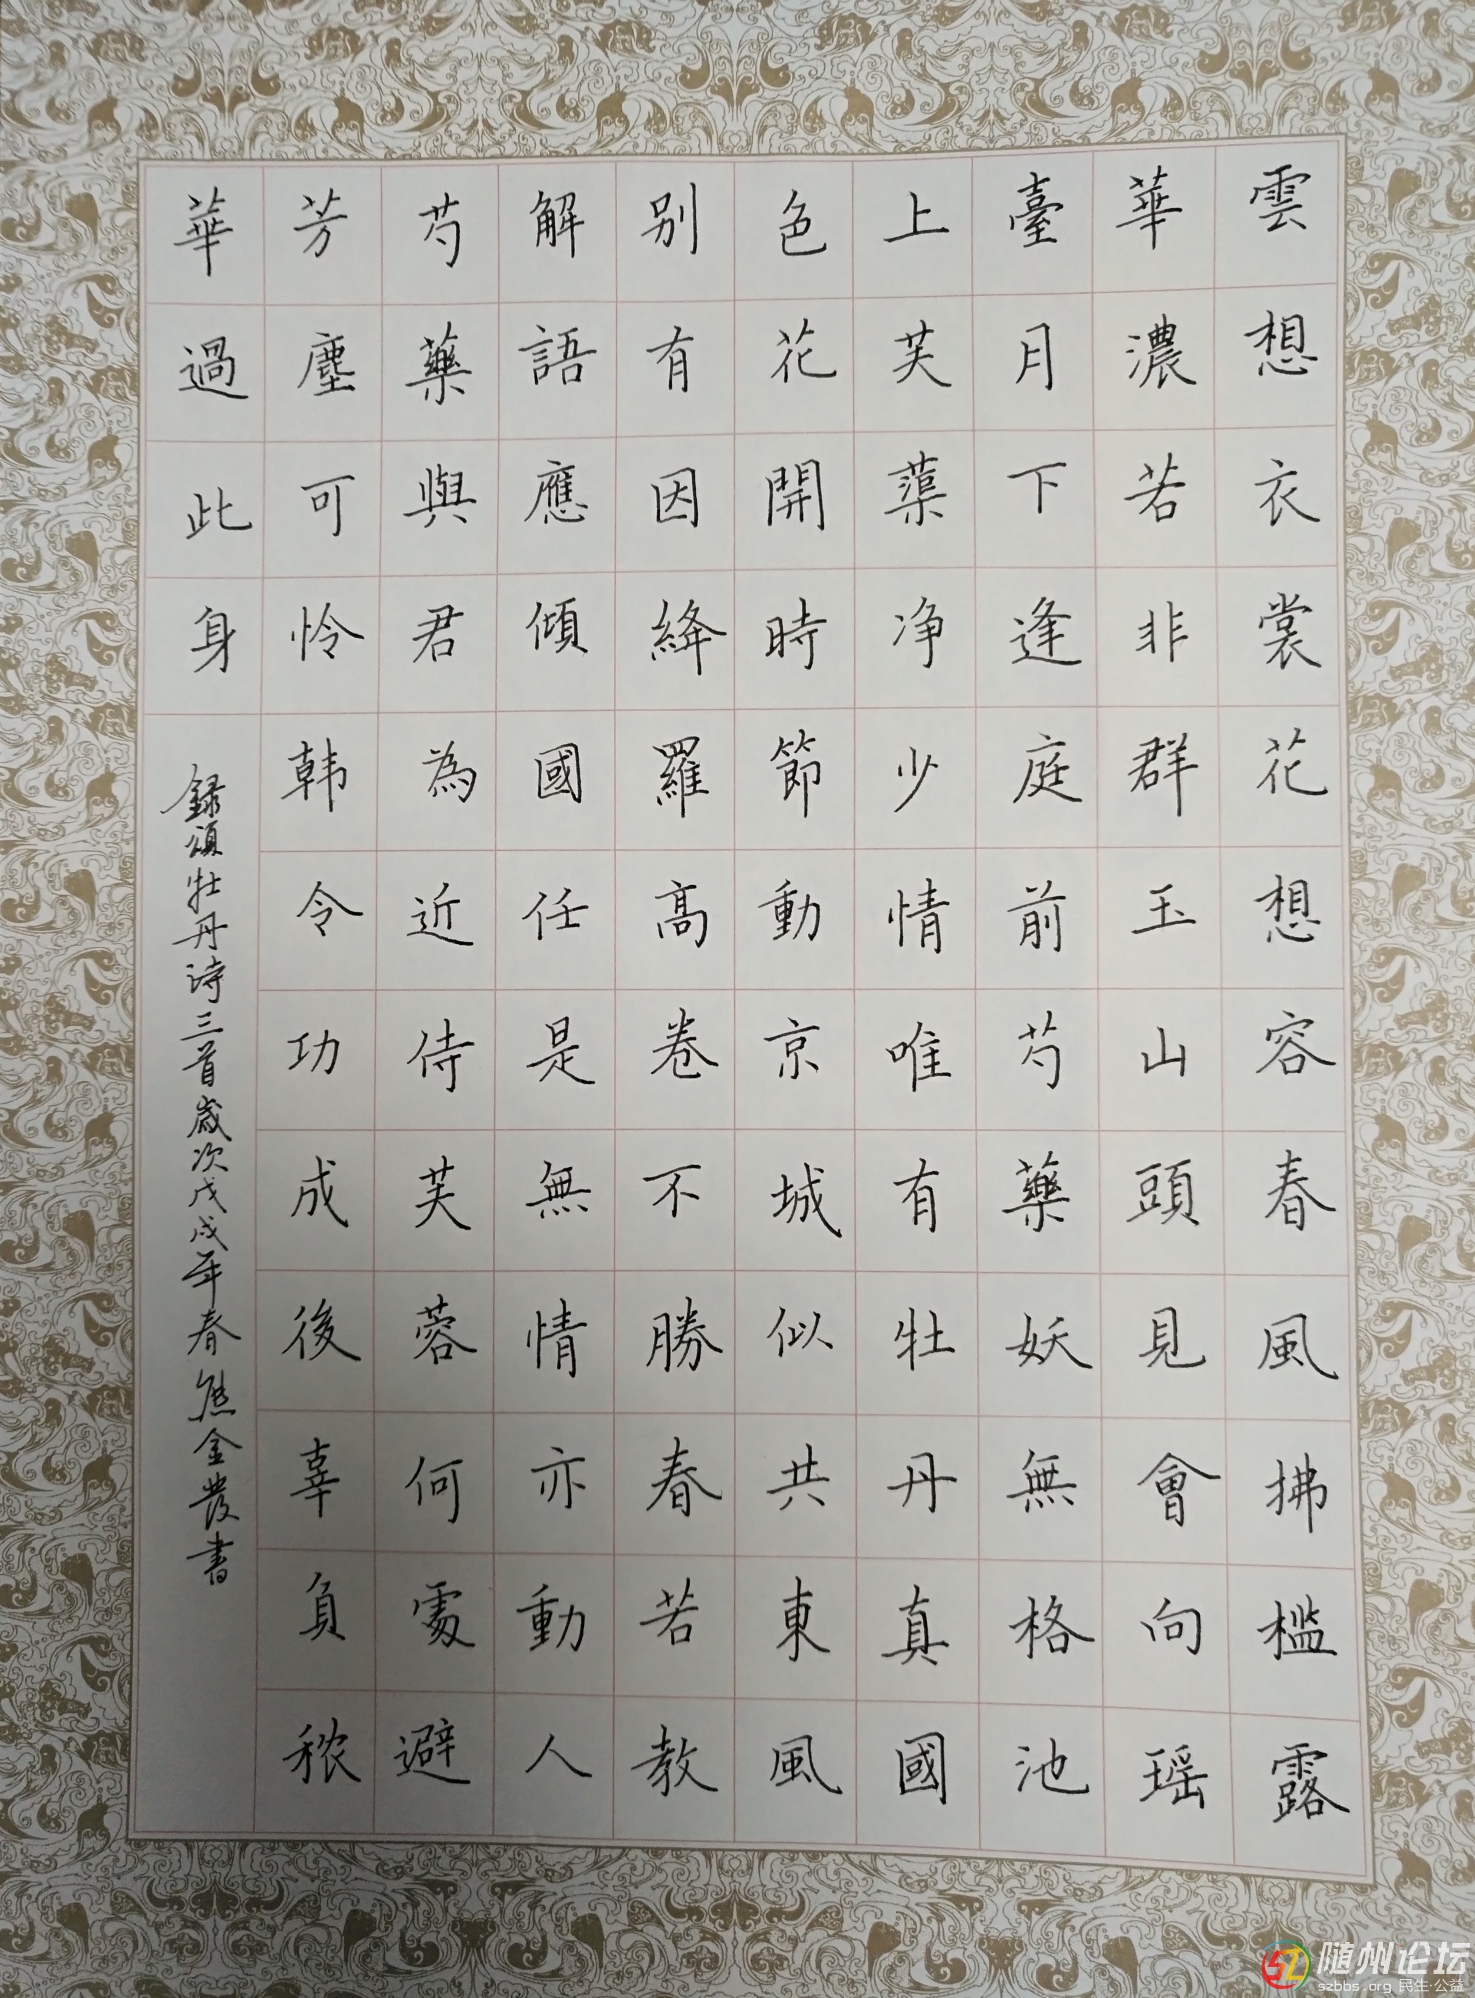 雲想衣裳花想容春風拂檻露
華濃若非群玉山頭見會向瑶
臺月下逢庭前芍藥妖無格池
上芙蕖净少情唯有牡丹真國
色花開時節動京城似共東風
别有因絳羅高卷不勝春若教
解語應傾國任是無情亦動人
芍藥與君為近侍芙蓉何處避
芳塵可怜韩令功成後辜負秾
華過此身
録頌牡丹詩三首歲次戊戌年春熊金發書
随州论坛
szbbs.org 民生·公益